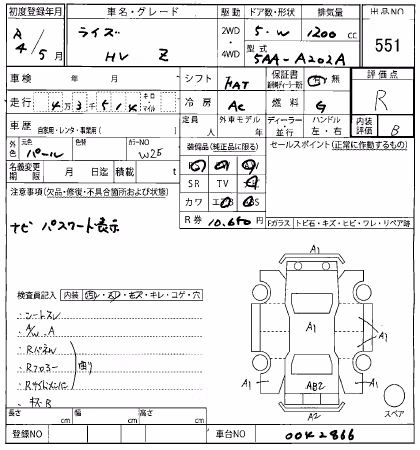 初度登録年月 車名・グレード 駆動 ドア数・形状 排気量 出品NO
R4/5月 ライズ HV Z 2WD・4WD 5・W 1200cc 551
型式 5AA-A202A
車検 年 月 シフト FAT 保証書 有・無 評価点
走行 4万3千514 キロ・マイル 冷房 AC 燃料 G R
車歴 自家用・レンタ・事業用( ) 定員 人 外車モデル 年 ディーラー・並行 ハンドル 左・右 内装評価 B
外色 元色 パール 色替 カラーNO W25 装備品(純正品に限る) セールスポイント(正常に作動するもの)
名義変更期限 月 日迄 積載 t
SR TV
注意事項(欠品・修復・不具合箇所および状態) カワ
R券 10,650 Fガラス トビ石・キズ・ヒビ・ワレ・リペア跡
ナビ パスワード表示
検査員記入 内装 汚レ・スレ・キズ・キレ・コゲ・穴
・シートスレ
・A/W A
・Rパネル
・Rフロアー
・Rサイドメンバー
・キズB
A1
A1
A1
A1
A1
AB2
A2
スペア
長さ cm 幅 cm 高さ cm
登録NO 車台NO 0042866